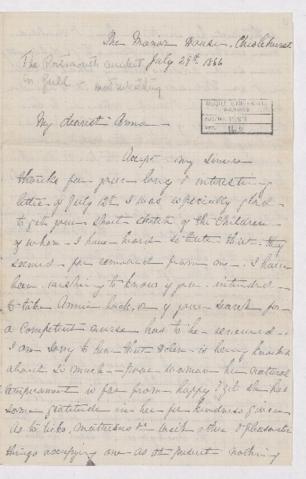 The Manor House, Chislehurst
July 29th 1866
My dearest Anna
Accept my sincere
thanks for your long & interesting
letter of July 12th I was especially glad
to get your short sketch of the children
of whom I have heard so little that they
seemed far removed from me. I have
been wishing to know if you intended
to take Annie back, or if your search for
a competent nurse has to be renewed.
I am sorry to hear that Helen is being knocked
about so much — poor woman her natural
temperament is far from happy & yet she has
some gratitude in her for kindness given
As to ticks, mattresses &c with other pleasant
things occupying one as at present nothing